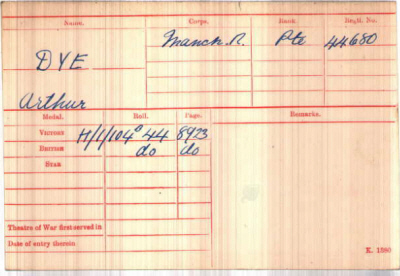 Name. Corps. Rank Regtl. No.
DYE Manch. R. Pte 44680
Arthur
Medal. Roll. Page. Remarks.
VICTORY H/1/104 B 44 8923
BRITISH do do
STAR
Theatre of War first served in
Date of entry therein
K. 1380